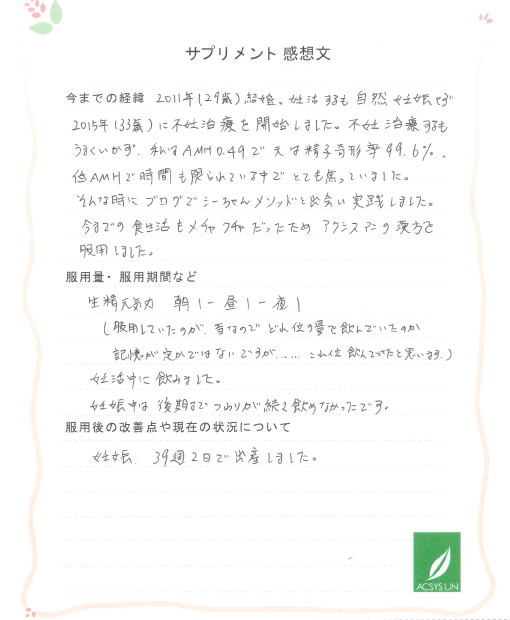 サプリメント 感想文
今までの経緯 2011年(29歳)結婚。妊活するも自然妊娠せず
2015年(33歳)に不妊治療を開始しました。不妊治療するも
うまくいかず、私はAMH0.49で夫は精子奇形率99.6%。
低AMHで時間も限られている中でとても焦っていました。
そんな時にブログでシーちゃんメソッドと出会い実践しました。
今までの食生活もメチャクチャだったためアクシスアンの漢方を
服用しました。
服用量・服用期間など
生精元気力 朝1-昼1-夜1
(服用していたのが、昔なのでどれ位の量で飲んでいたのか
記憶が定かではないですが......これ位飲んでいたと思います。)
妊活中に飲みました。
妊娠中は後期までつわりが続き飲めなかったです。
服用後の改善点や現在の状況について
妊娠、39週2日で出産しました。
ACSYSUN